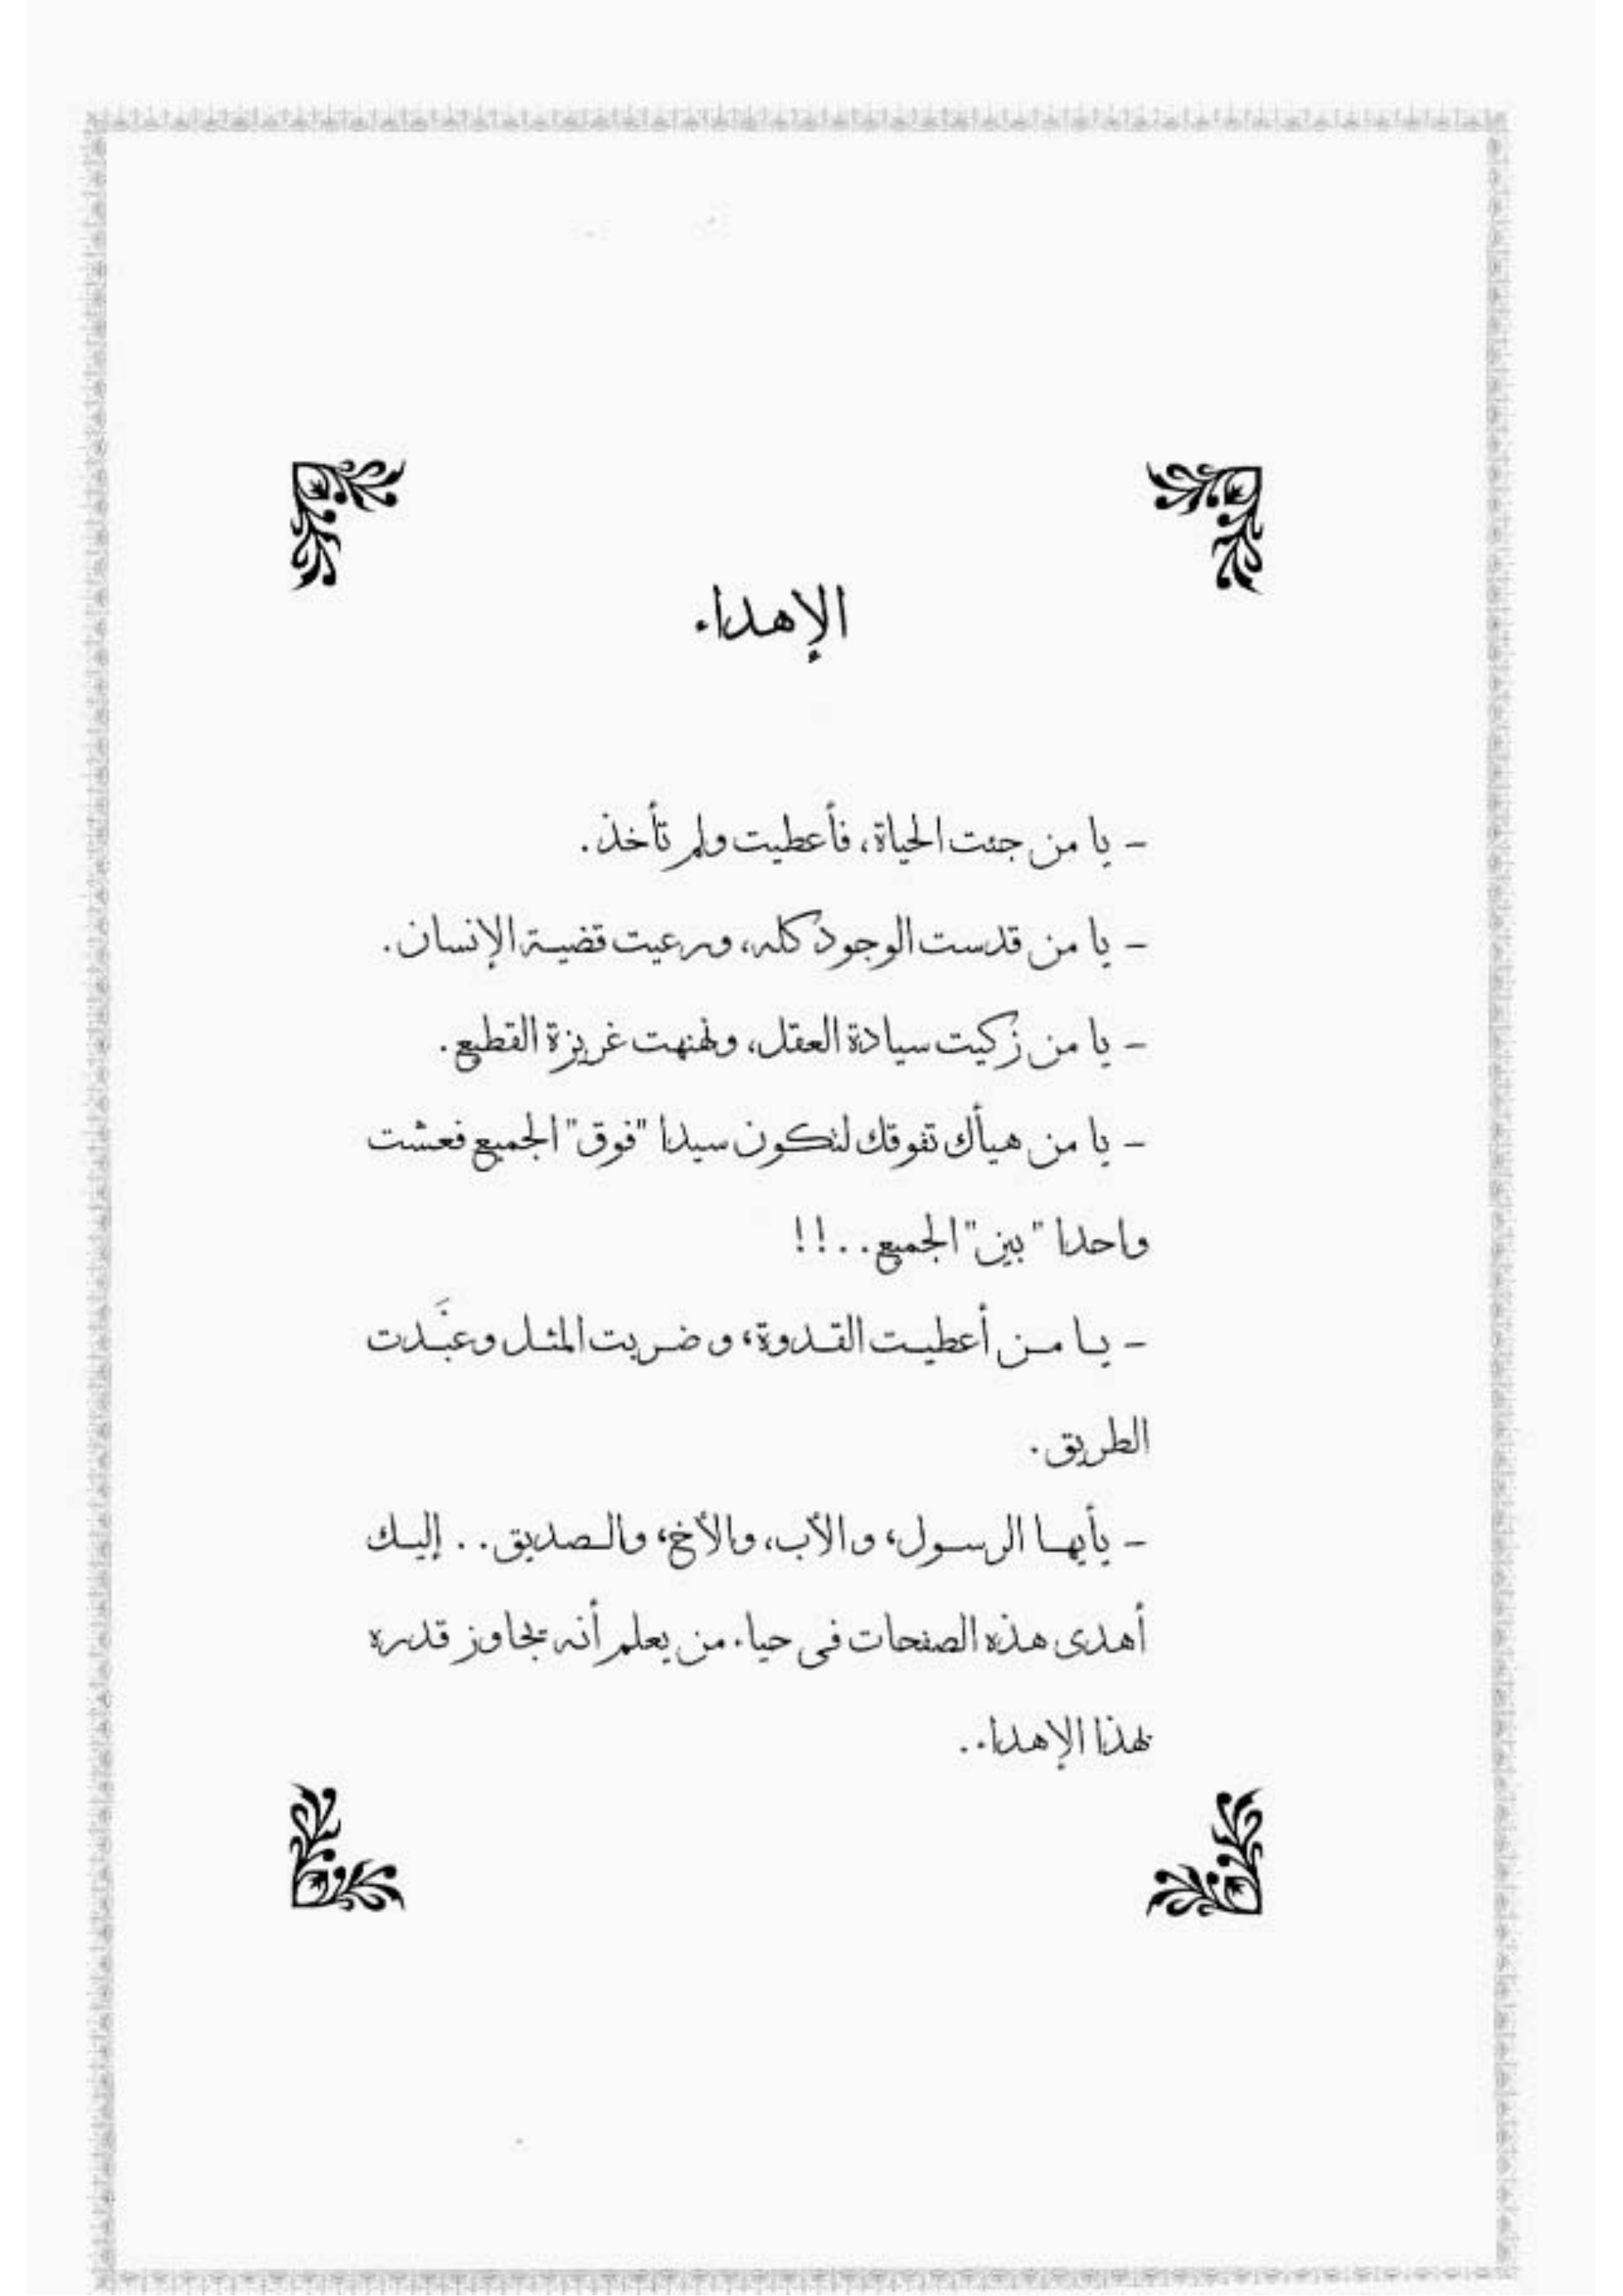 الإهداء
- يا من جئت الحياة، فأعطيت ولم تأخذ.
- يا من قدست الوجود كله، ورعيت قضية الإنسان.
- يا من زكيت سيادة العقل، ونهنهت غريزة القطيع.
- يا من هيأك تفوقك لتكون سيدا "فوق" الجميع فعشت
واحدا "بين" الجميع..!!
- يا من أعطيت القدوة، وضربت المثل وعبَّدت
الطريق.
- يأيها الرسول، والأب، والأخ، والصديق.. إليك
أهدى هذه الصفحات فى حياء من يعلم أنه يجاوز قدره
بهذا الإهداء..